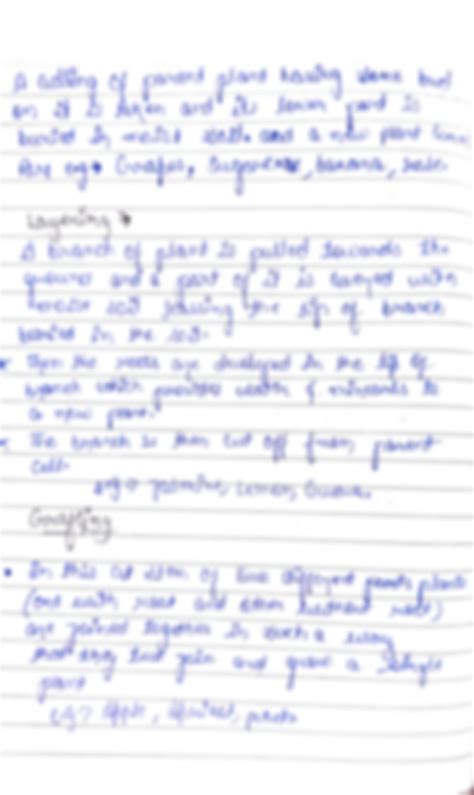 A cutting of parent plant having some bud
on it is taken and its lower part is
buried in moist soil. and a new plant
eg → Grapes, sugarcane, banana, rose.
Layering →
A branch of plant is pulled towards the
and a part of it is covered with
moist soil leaving the tip of branch
buried in the soil.
Then the roots are developed in the
branch which provides water & minerals to
a new plant.
The branch is then cut off from parent
eg → Jasmine, Lemon, Guava.
Grafting
• In this cut stem of two different plants
(one with root and other without root)
are joined together in such a way
that they join and a single
plant
eg → Apple,